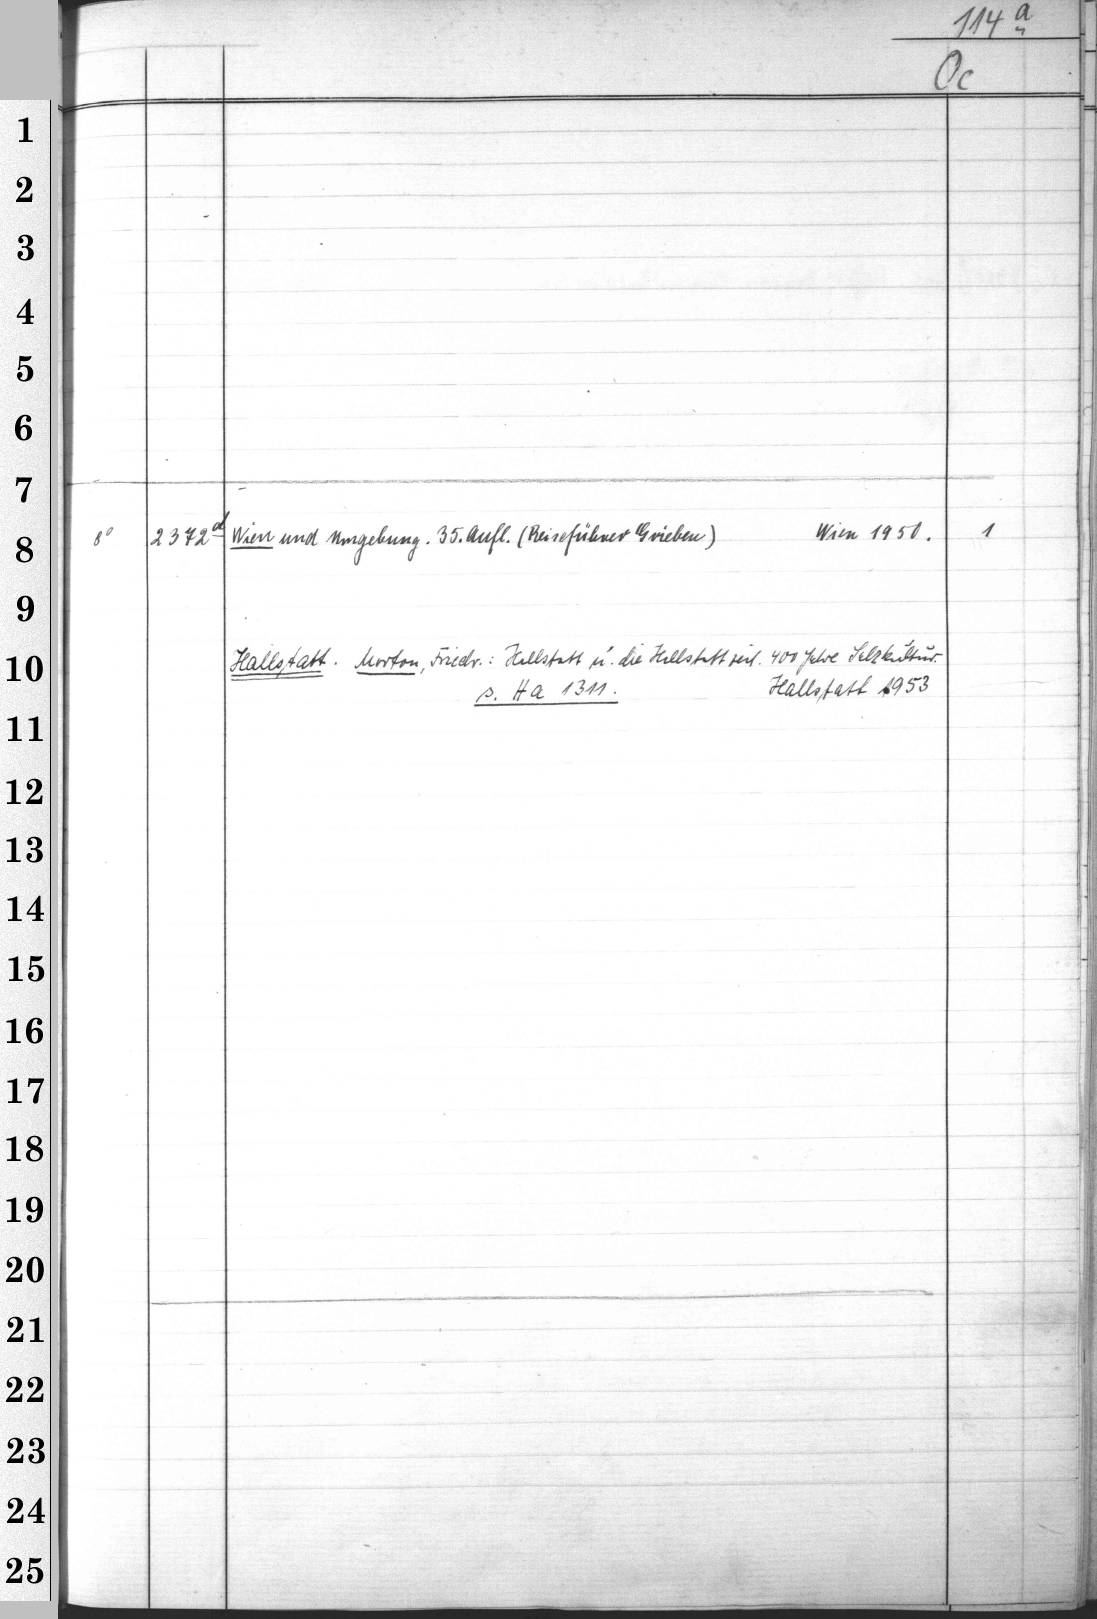 114 a
Oc
1
2
3
4
5
6
7
8
8° 2372 d Wien und Umgebung. 35. Aufl. (Reiseführer Grieben) Wien 1950. 1
9
10
Hallstatt. Morton, Friedr.: Hallstatt u. die Hallstattzeit. 400 Jahre Salzkultur.
s. Ha 1311. Hallstatt 1953
11
12
13
14
15
16
17
18
19
20
21
22
23
24
25